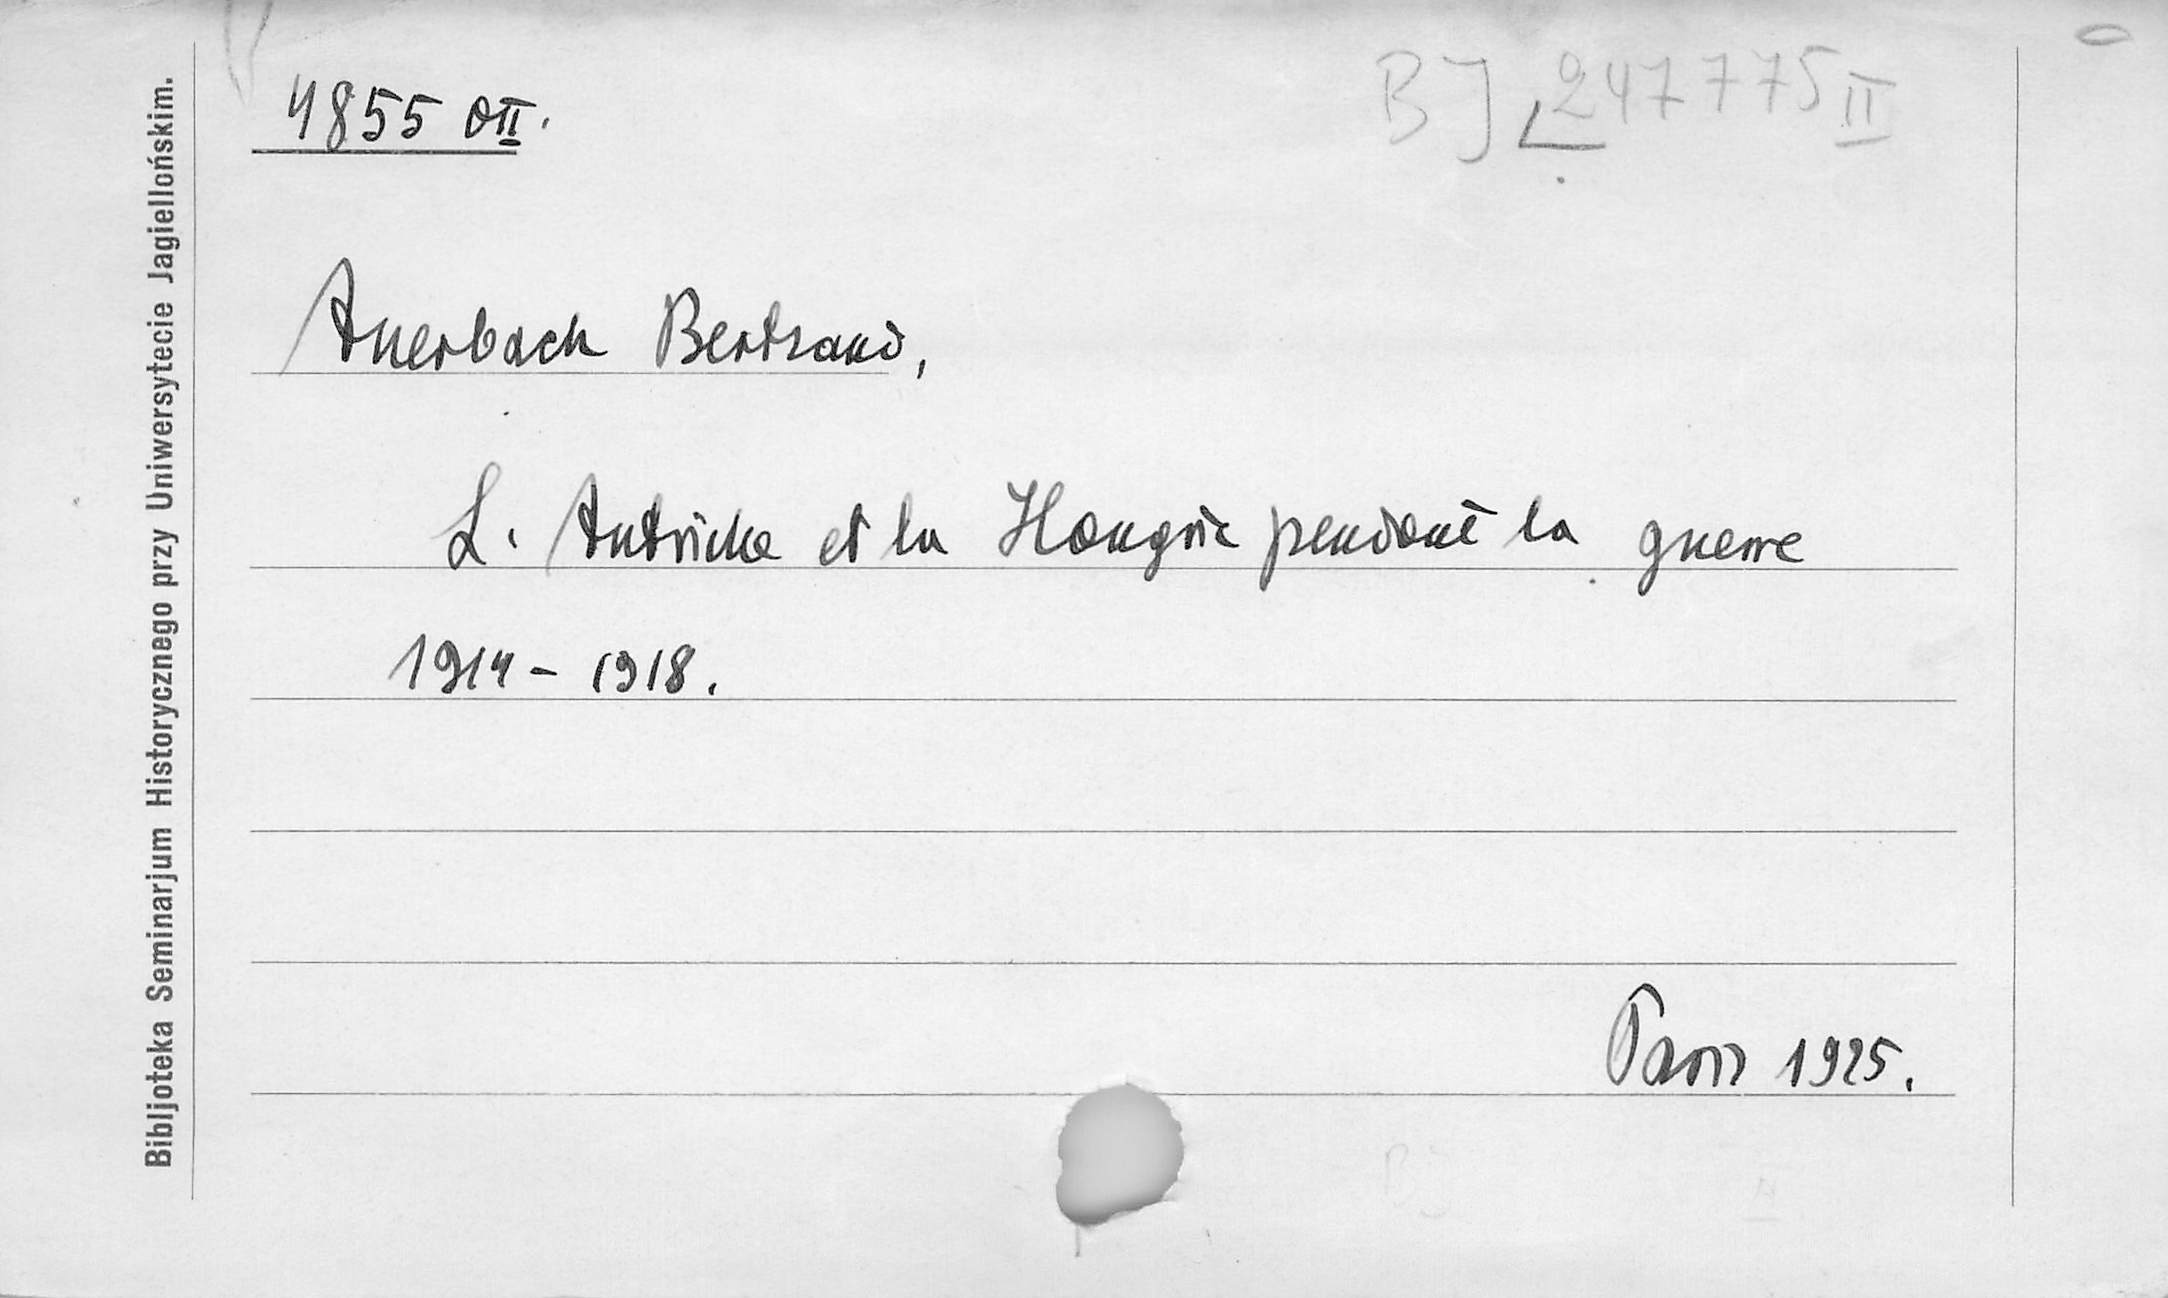 4855 OII.
BJ 247775 II
Auerbach Bertrand,
L. Autriche et la Hongrie pendant la guerre
1914 - 1918.
Paris 1925.
Bibljoteka Seminarjum Historycznego przy Uniwersytecie Jagiellońskim.